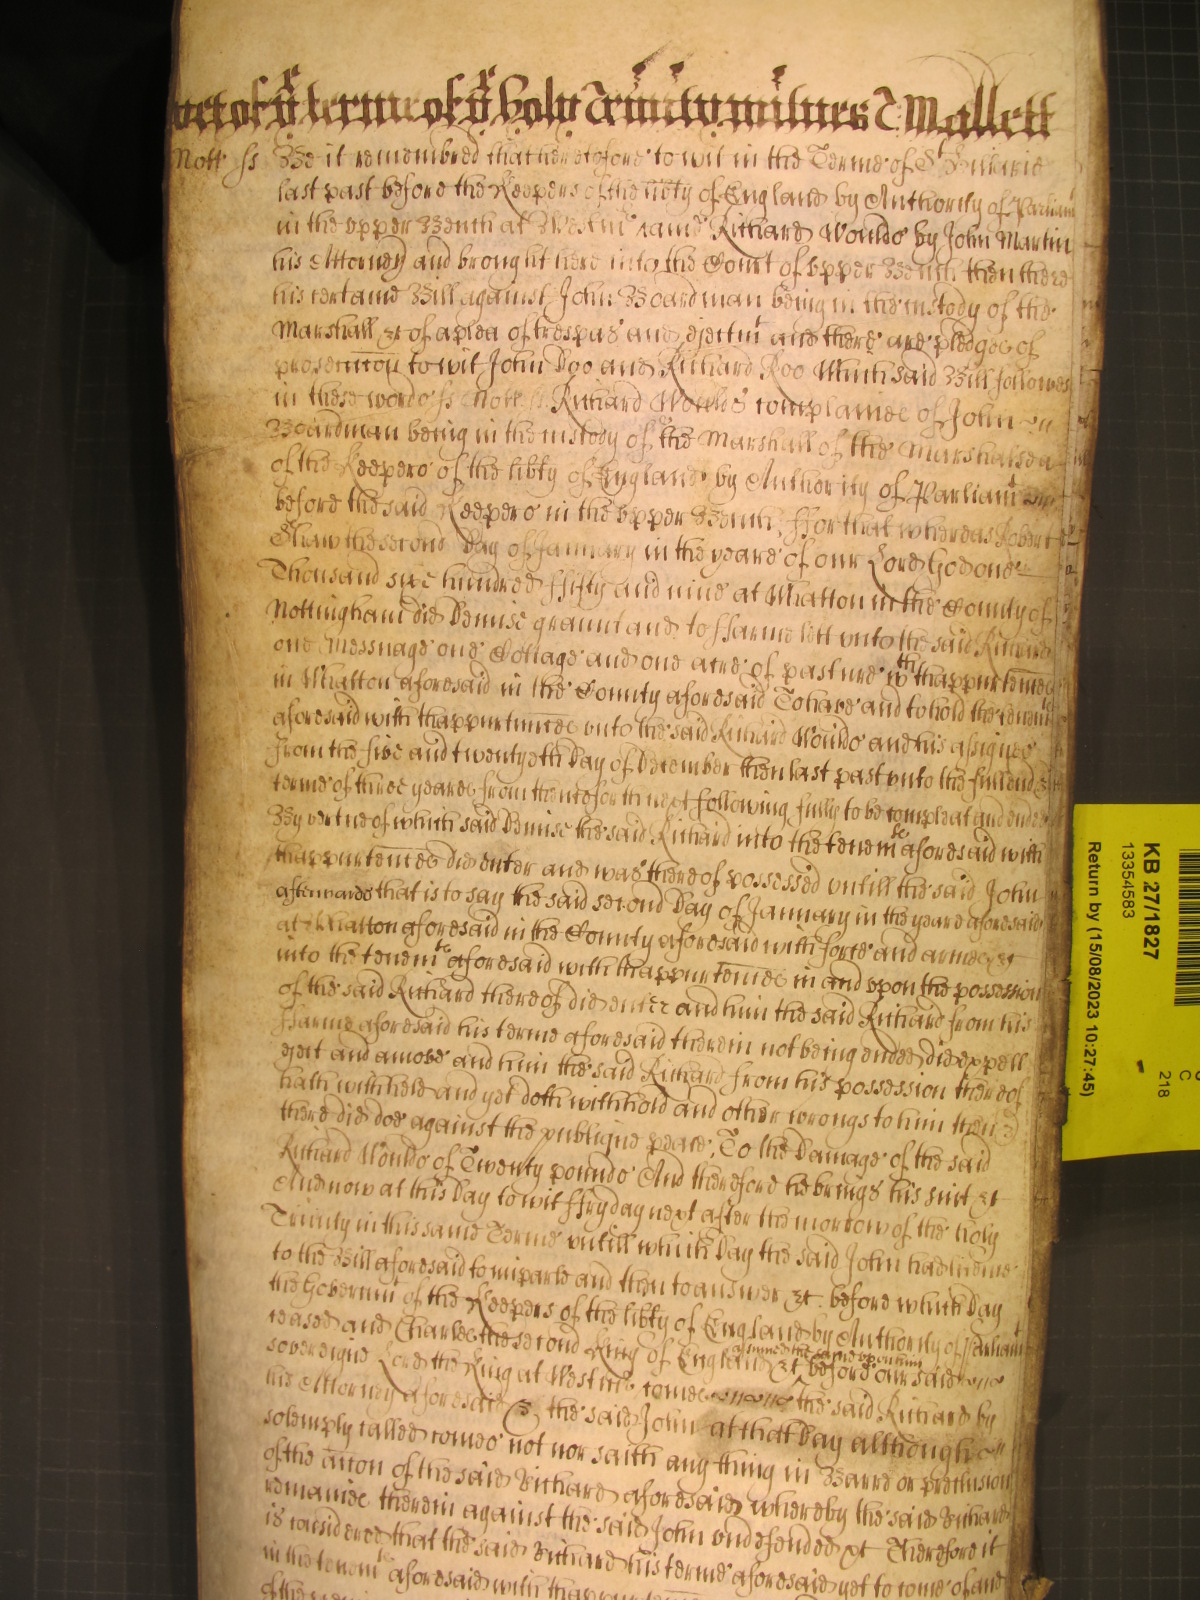 yet of yͤ terme of yͤ Holy Trinity Milnes & Mallett
Nott ss Be it remembred that heretofore to wit in the Terme of Sᵗ Hillarie
last past before the Keepers of the libty of England by Authority of Parliamᵗ
in the upper Bench at Westmʳ came Richard Woulds by John Martin
his Attorney and brought here into the Court of upper Bench then there
his certaine Bill against John Boardman being in the custody of the
Marshall &c of a plea of trespas and ejectmᵗ and there are pledges of
prosecucõn to wit John Doo and Richard Roo Which said Bill followes
in these words ss Nott ss Richard Woulds complaines of John
Boardman being in the custody of the Marshall of the Marshalsea
of the Keepers of the libty of England by Authority of Parliamᵗ
before the said Keepers in the upper Bench ffor that whereas Robert
Shaw the second Day of January in the yeare of our Lord God one
Thousand six hundred ffifty and nine at Whatton in the County of
Nottingham did Demise graunt and to ffarme lett unto the said Richard
one Messuage one Cottage and one acre of pasture wᵗʰ thappurtennces
in Whatton aforesaid in the County aforesaid To have and to hold the tenemᵗˢ
aforesaid with thappurtennces unto the said Richard Woulds and his assignes
from the five and twentyeth Day of December then last past unto the full end &
terme of three yeares from thenceforth next following fully to be compleat and ended
By vertue of which said Demise the said Richard into the tenemᵗˢ aforesaid with
thappurtennces did enter and was thereof possessed untill the said John
afterwards that is to say the said second Day of January in the yeare aforesaid
at Whatton aforesaid in the County aforesaid with force and armes &c
into the tenemᵗˢ aforesaid with thappurtennces in and upon the possession
of the said Richard thereof did enter and him the said Richard from his
ffarme aforesaid his terme aforesaid therein not being ended did expell
eject and amove and him the said Richard from his possession thereof
hath withheld and yet doth withhold and other wrongs to him then &
there did doe against the publique peace, To the Damage of the said
Richard Woulds of Twenty pounds And therefore he brings his suit &c
And now at this Day to wit ffryday next after the morrow of the holy
Trinity in this same Terme untill which Day the said John had licence
to the Bill aforesaid to imparle and then to answer &c before which Day
the Governmᵗ of the Keepers of the libty of England by Authority of Parliamᵗ
ceased and Charles the second King of England &c assumed the same upon him before our said
sovereigne Lord the King at Westmʳ comes the said Richard by
his Attorney aforesaid & the said John at that Day although
solemply called comes not nor saith any thing in Barre or preclusion
of the accõn of the said Richard aforesaid whereby the said Richard
remaines therein against the said John undefended &c Therefore it
is considered that the said Richard his terme aforesaid yet to come of and
in the tenemᵗˢ aforesaid with
KB 27/1827
13354583
Return by (15/08/2023 10:27:45)
C
218